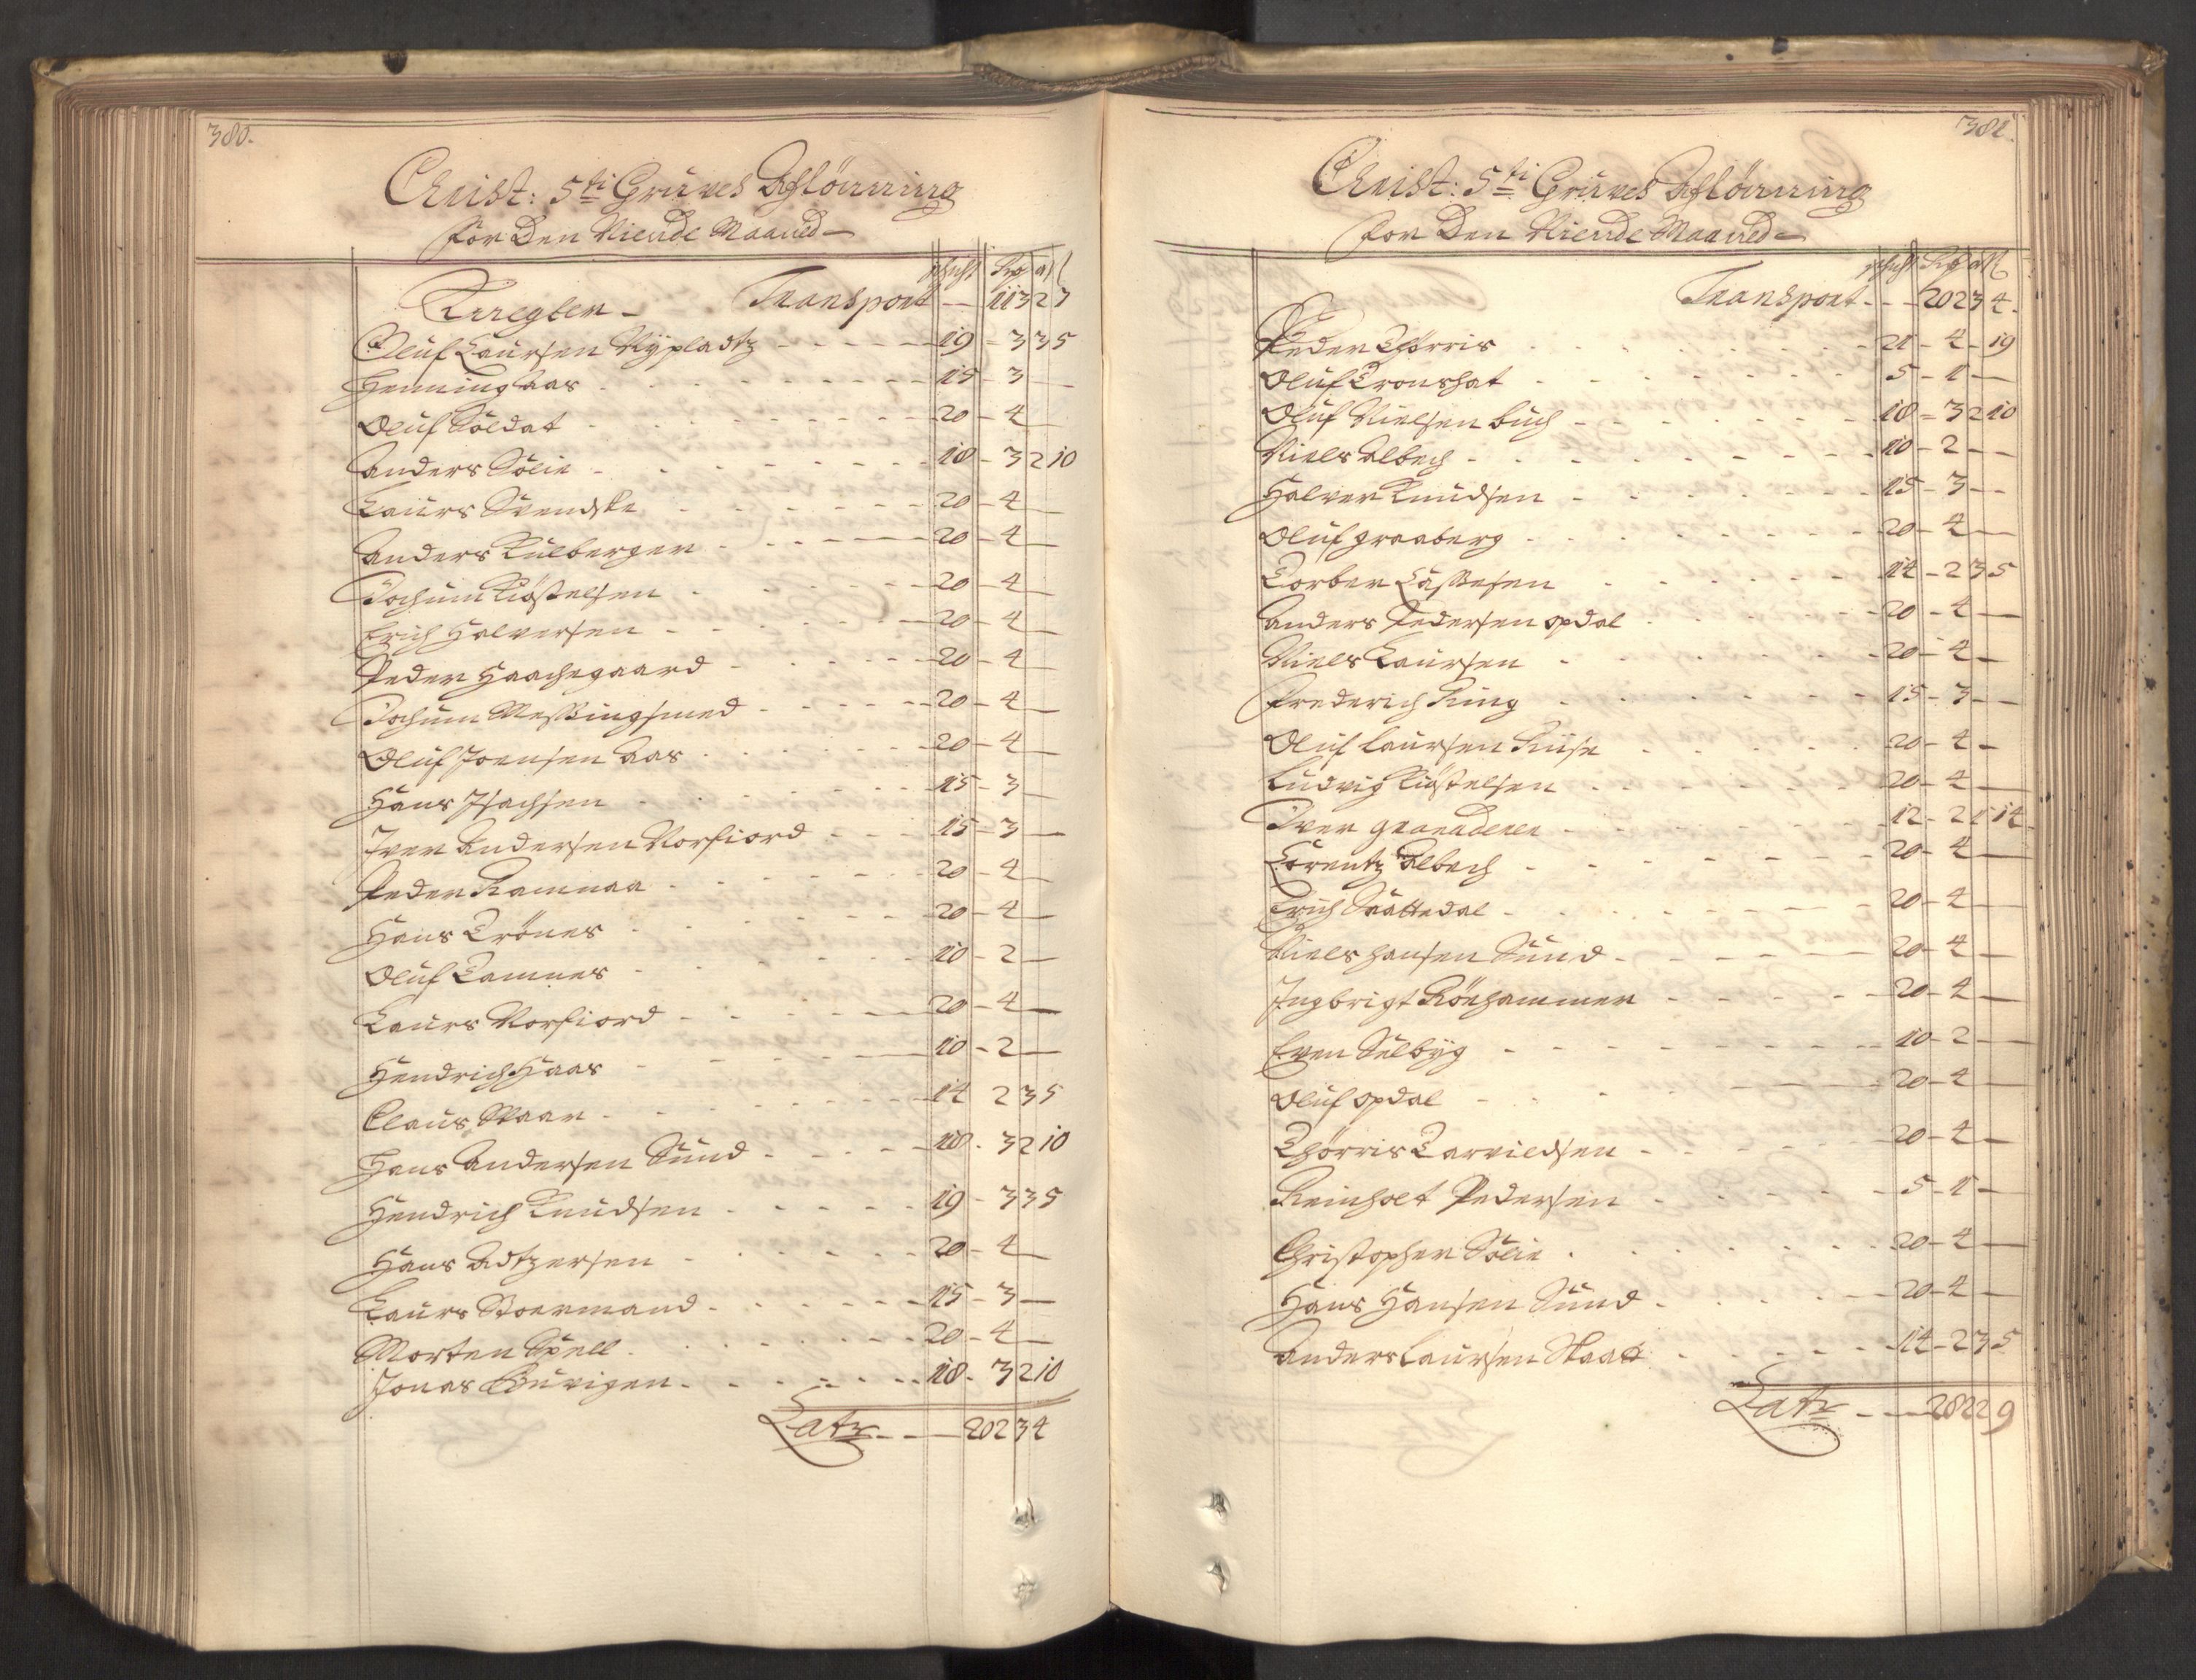 380.
Christ: 5ti Gruves Aflønning
for Den Niende Maaned
schicht Rdr ort ß
Knegter Transport — 113 2 7
Oluf Laursen Nypladtz 19 - 3 3 5
Henning Aas 15 - 3 —
Oluf Soldat 20 - 4 —
Anders Sølie 18 - 3 2 10
Laurs Svendske 20 - 4 —
Anders Kulberger 20 - 4 —
Jochum Kiøstelsen 20 - 4 —
Erich Halversen 20 - 4 —
Peder Haachegaard 20 - 4 —
Jochum Messingsmed 20 - 4 —
Oluf Joensen Aas 20 - 4 —
Hans Isachsen 15 - 3 —
Iver Andersen Vorfiord 15 - 3 —
Peder Kamnaa 20 - 4 —
Hans Trønes 20 - 4 —
Oluf Tamnes 10 - 2 —
Laurs Vorfiord 20 - 4 —
Hendrich Haas 10 - 2 —
Claus Skaar 14 2 3 5
Hans Andersen Sund 18 - 3 2 10
Hendrich Knudsen 19 - 3 3 5
Hans Adtzersen 20 - 4 —
Laurs Stoermand 15 - 3 —
Morten Spell 20 - 4 —
Jonas Buvigen 18 - 3 2 10
Latr — 202 3 4
381.
Christ: 5ti Gruves Aflønning
for Den Niende Maaned
schicht Rdr ort ß
Transport - - 202 3 4
Peder Thorris 21 - 4 - 19
Oluf Tronshat 5 - 1 —
Oluf Nielsen buch 18 - 3 2 10
Niels Albech 10 - 2 —
Halver Knudsen 15 - 3 —
Oluf graaberg 20 - 4 —
Torber Lassesen 14 - 2 3 5
Anders Pedersen opdal 20 - 4 —
Niels Laursen 20 - 4 —
Frederich Ring 15 - 3 —
Oluf Laursen Ruse 20 - 4 —
Ludvig Kiøstelsen 20 - 4 —
Iver granaderer 12 - 2 1 14
Lorentz Albech 20 - 4 —
Erich Saattedal 20 - 4 —
Niels hansen Sund 20 - 4 —
Ingbrigt Rønhammer 20 - 4 —
Even Selbyg 10 - 2 —
Oluf opdal 20 - 4 —
Thorris Tarvildsen 20 - 4 —
Reinholt Pedersen 5 - 1 —
Christopher Sølie 20 - 4 —
Hans Hansen Sund 20 - 4 —
Anders Laursen Skaat 14 - 2 3 5
Latr — 282 2 9